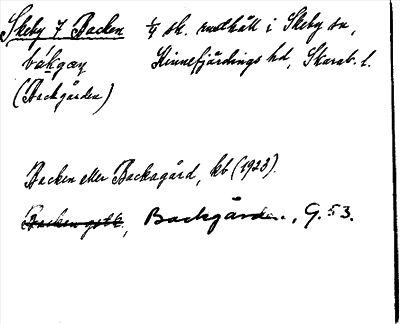 Skeby 7 Backen ¼ sk. rusthåll i Skeby sn,
båkgan Kinnefjärdings hd, Skarab. l.
(Backgården)
Backen eller Backagård, kb (1923).
Backen gstk., Backgården., G. 53.